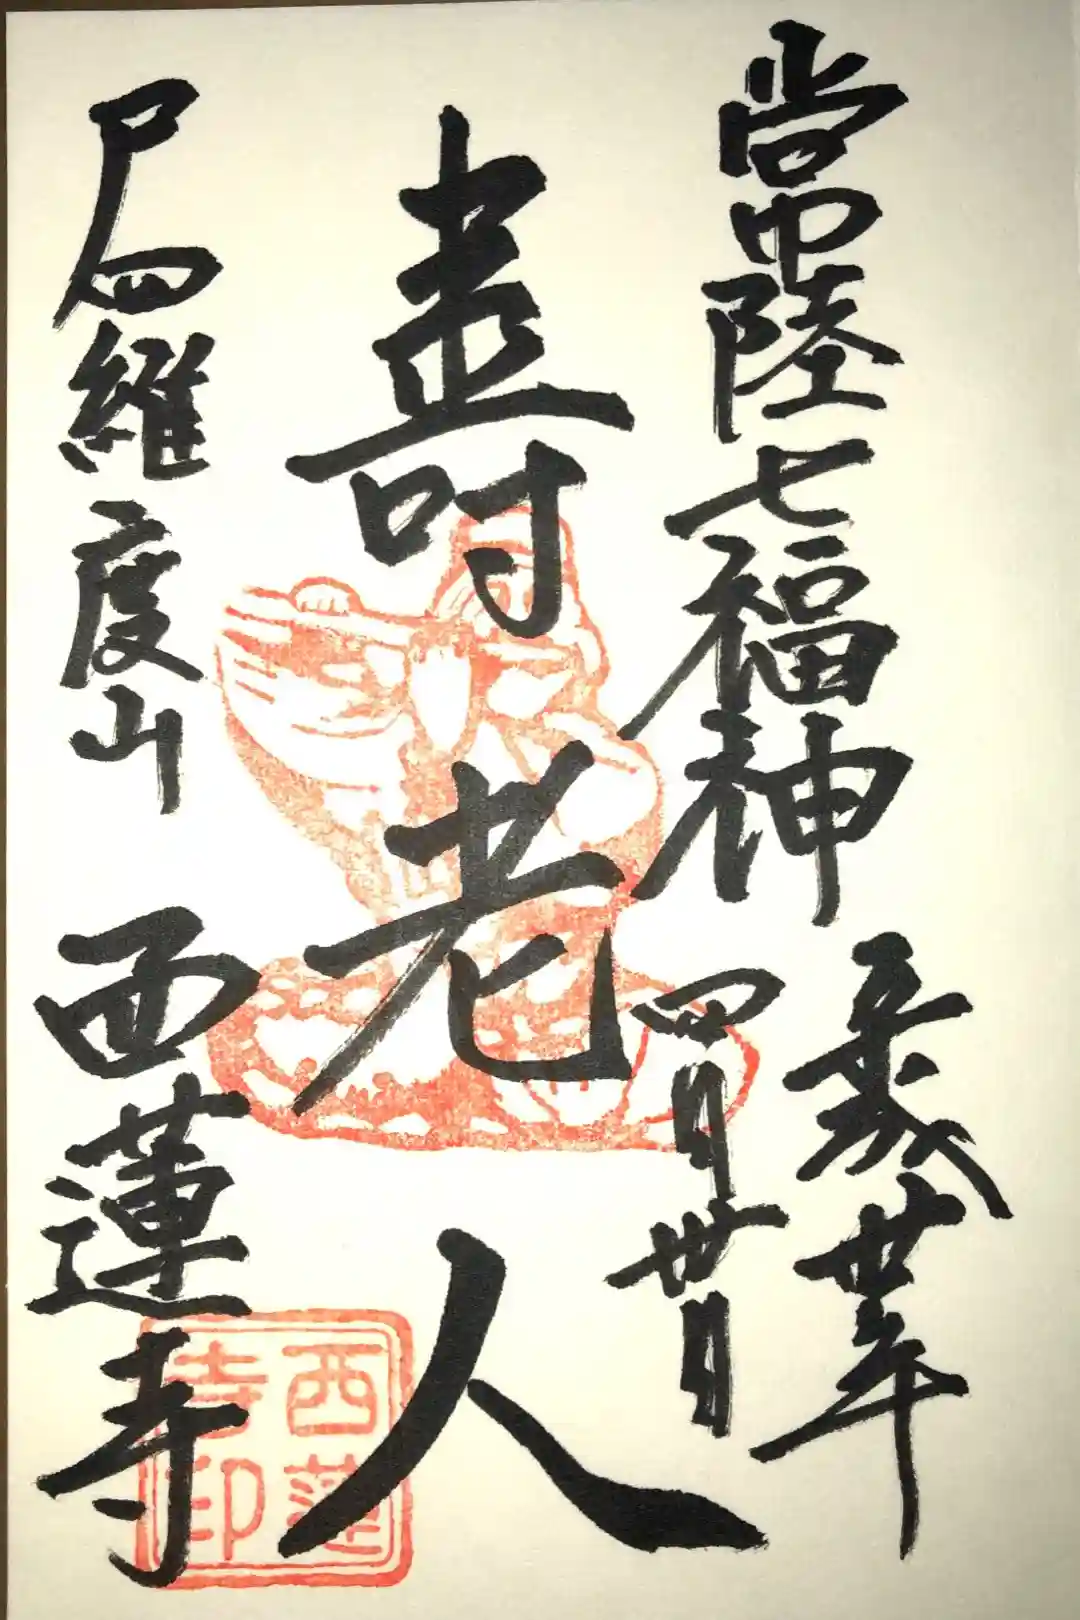 常陸七福神
平成卅年
四月卅日
壽老人
尸羅度山 西蓮寺
西蓮寺印